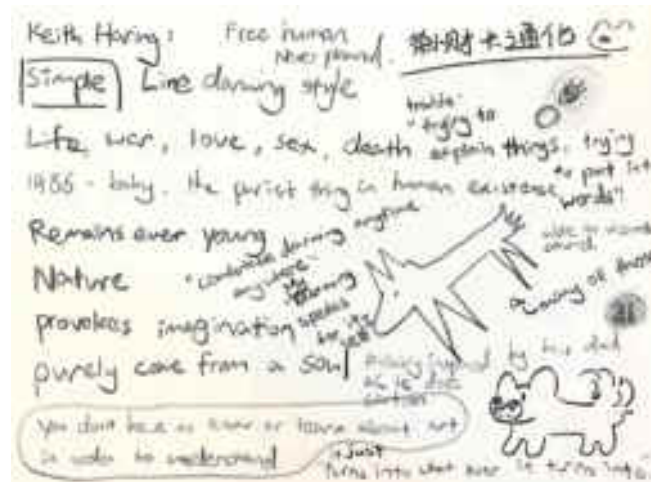 Keith Haring: Free human
Never planned.
卡通化
Simple Line darwing style
trouble
"trying to
Life, war, love, sex, death explain things, trying
to put into
1986 - baby. the purist thing in human existence words"
Remains ever young
"continue drawing anytime
anywhere"
Nature
drawing
speaks
for it's
self
provokes imagination
purely come from a soul
being inspired by his dad
as he does
cartoon
You don't have to know or learn about art
in order to understand
"Just
turns into what ever it turns into"